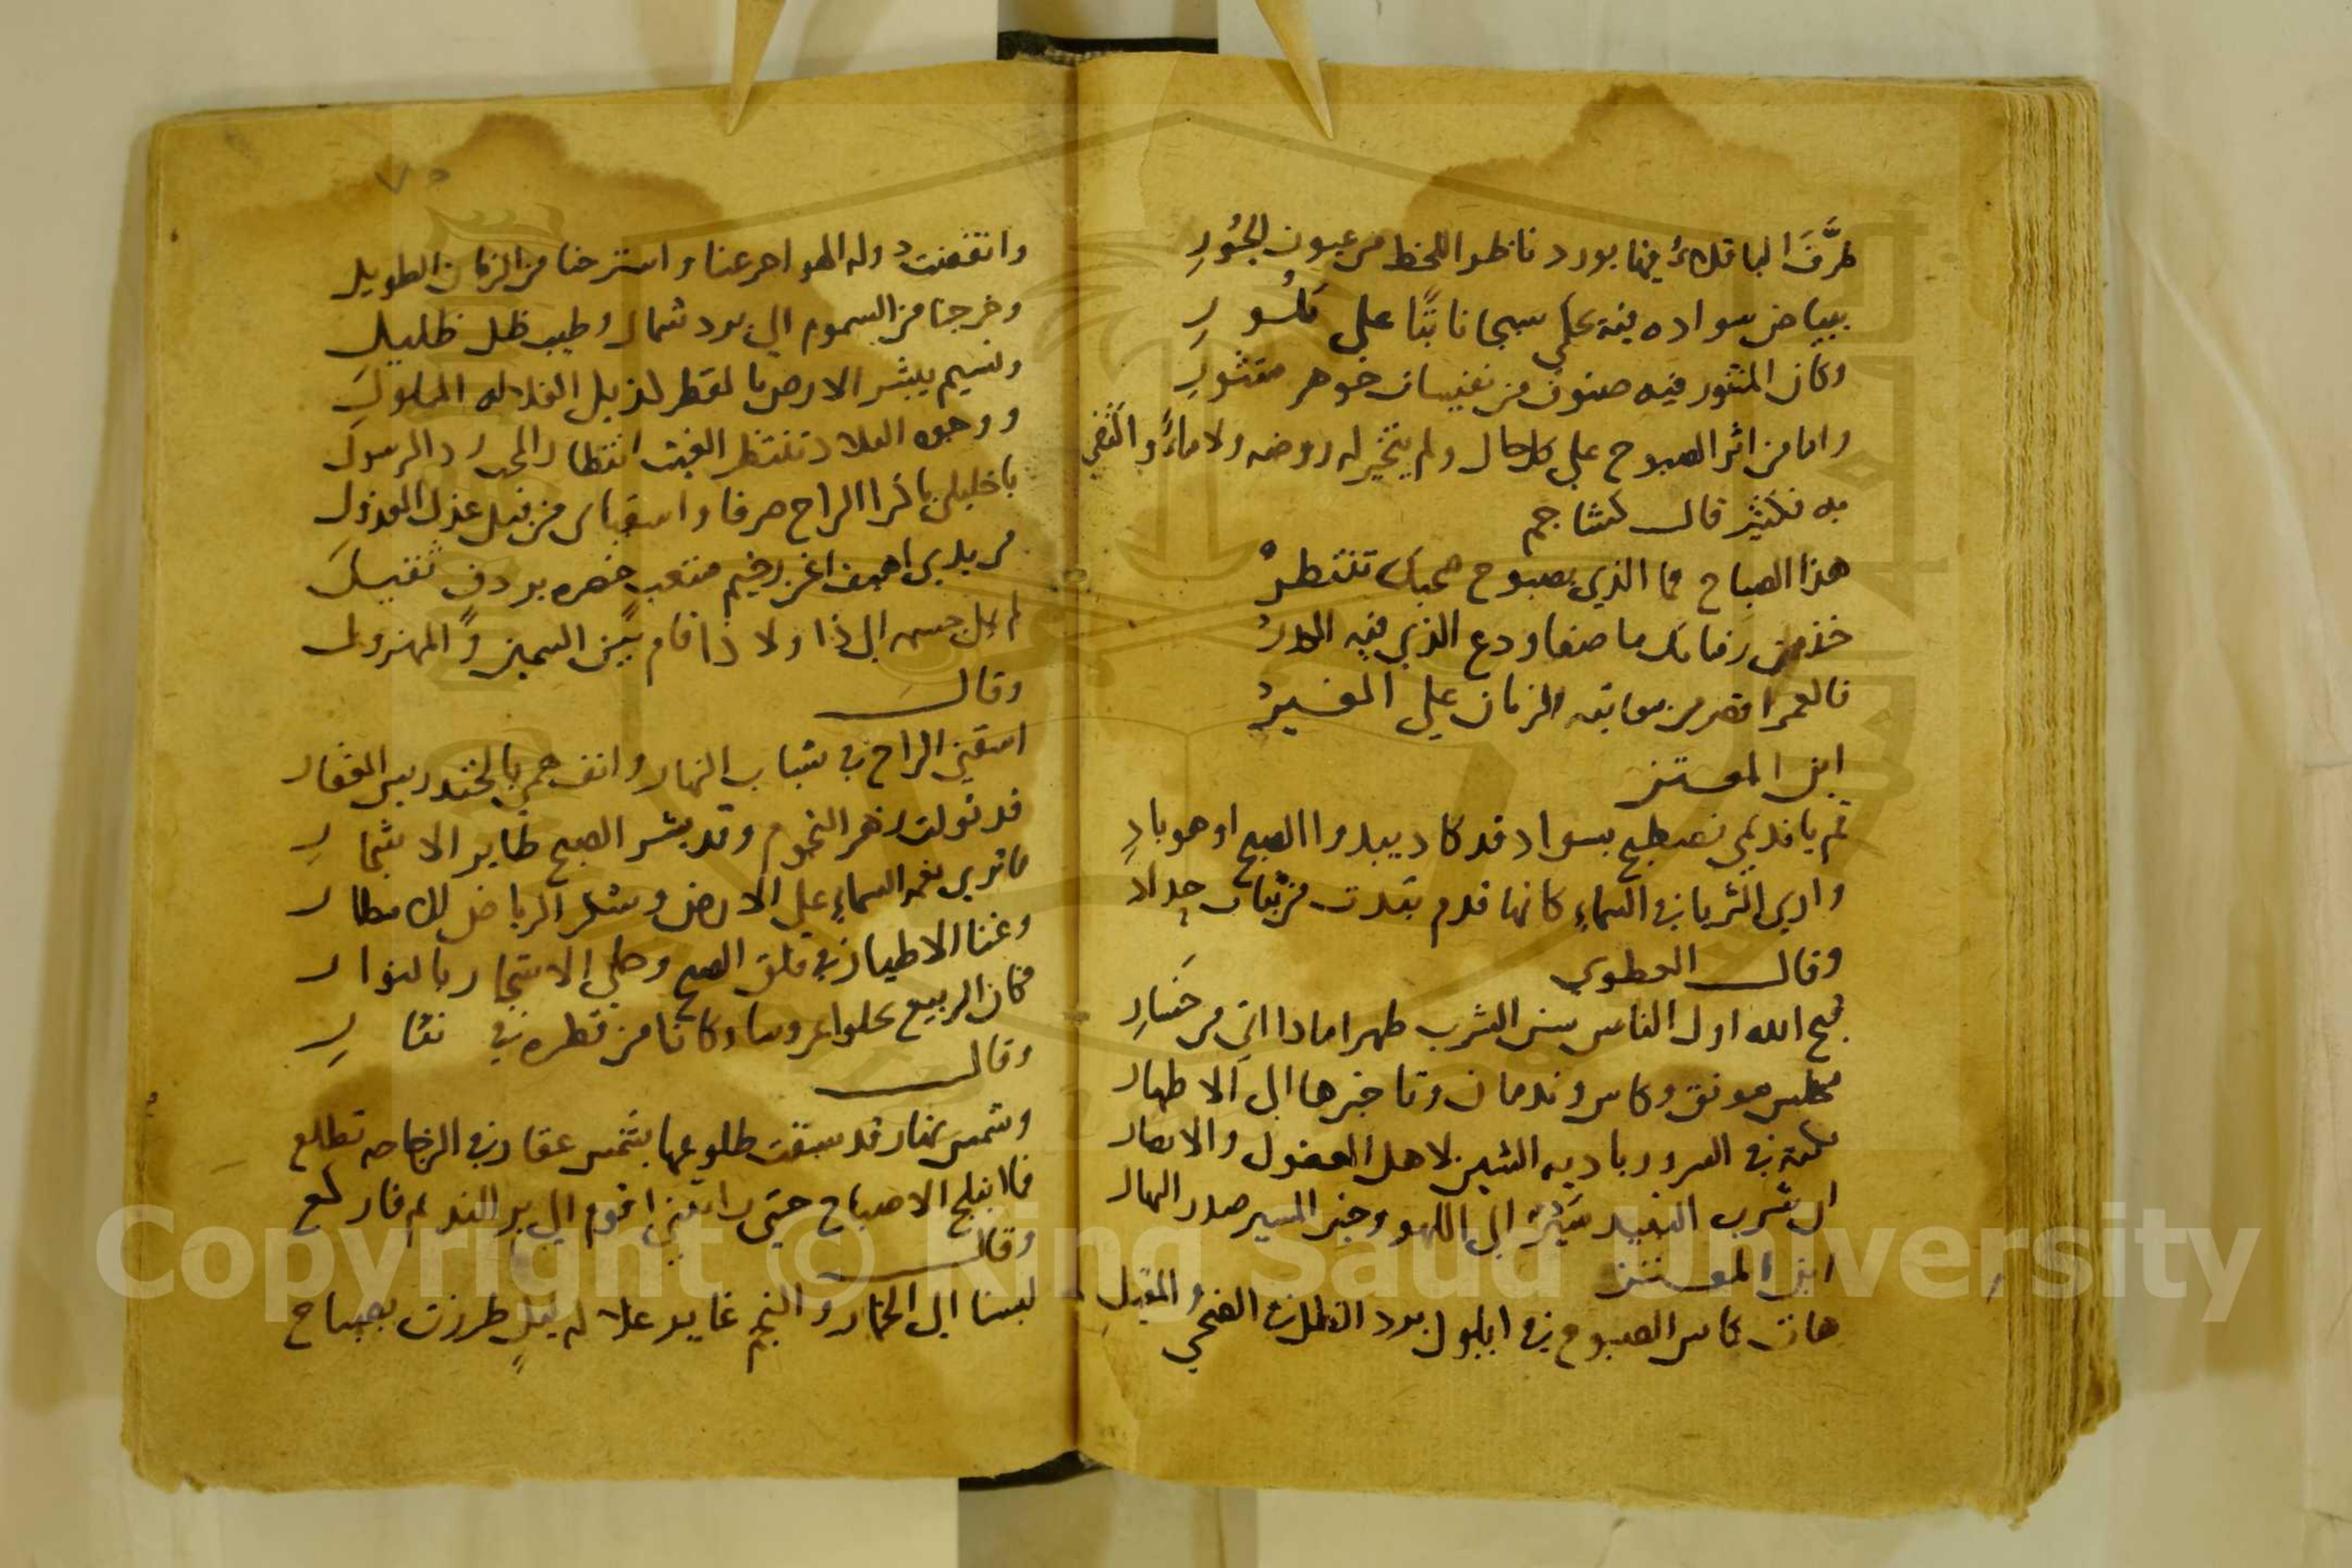 طرَّفَ الباقلاءُ فيها بورد ناظر اللحظ من عيون الحُورِ
ببياض سواده فيه يحكي سبجا نابتًا على كسُورِ
وكان المنثور فيه صنوف من نفيسات جوهر منثورِ
واما من اثر الصبوح على كل حال ولم يتخير له روضه ولا ماءً واكتفي
به فكثير قال كشاجم
هذا الصباح فما الذي بصبوح صحبك تنتظرْ
خذ من زمانك ما صفا ودع الذي فيه الكدرْ
فالعمر اقصر من معاتبه الزمان علي الغيرْ
ابن المعتز
قم يا نديمي نصطبح بسواد قد كاد يبدوا الصبح او هو بادِ
واري الثريا في السماء كانها قدم تبدت من ثياب حداد
وقال العطوي
قبح الله اول الناس سن الشرب ظهرا ماذا اتي من خسَارِ
مجلس مونق وكاس وندمان وتاخيرها الي الاظهار
ان شرب النبيذ سَيْرٌ الي اللهو وخير المسير صدر النهار
ابن المعتز
هات كاس الصبوح في ايلول برد الظل في الضحي والمقيل
٧٥
وانقضت دوله الهواجر عنا واسترحنا من الزمان الطويل
وخرجنا من السموم الي برد شمال وطيب ظل ظليل
ونسيم يبشر الارض بالقطر لذيل الغلاله المبلول
ووجوه البلاد تنتظر الغيث انتظار المحب رد الرسول
يا خليلي باكرا الراح صرفا واسقياني من قبل عذل العذول
من يدي اهيف اغن رخيم متعب خصره بردف ثقيل
لم يمل حسنه الي ذا ولا ذا قام بين السمين والمهزول
وقال
اسقني الراح في شباب النهار وانف همي بالخندريس العقار
قد تولت زهر النجوم وقد بشر الصبح طاير الاشجار
ما تري نعمه السماء علي الارض وشكر الرياض للامطار
وغنا الاطيار في فلق الصبح وحلي الاشجار بالنوار
فكان الربيع يجلوا عروسا وكانا من قطره في نثار
وقال
وشمس نهار قد سبقت طلوعها بشمس عقار في الزجاجه تطلع
فما انبلج الاصباح حتي راتني اقوم الي بر النديم فاركع
وقال
لبسنا الي الخمار والنجم غاير غلاله ليلٍ طرزت بصباح